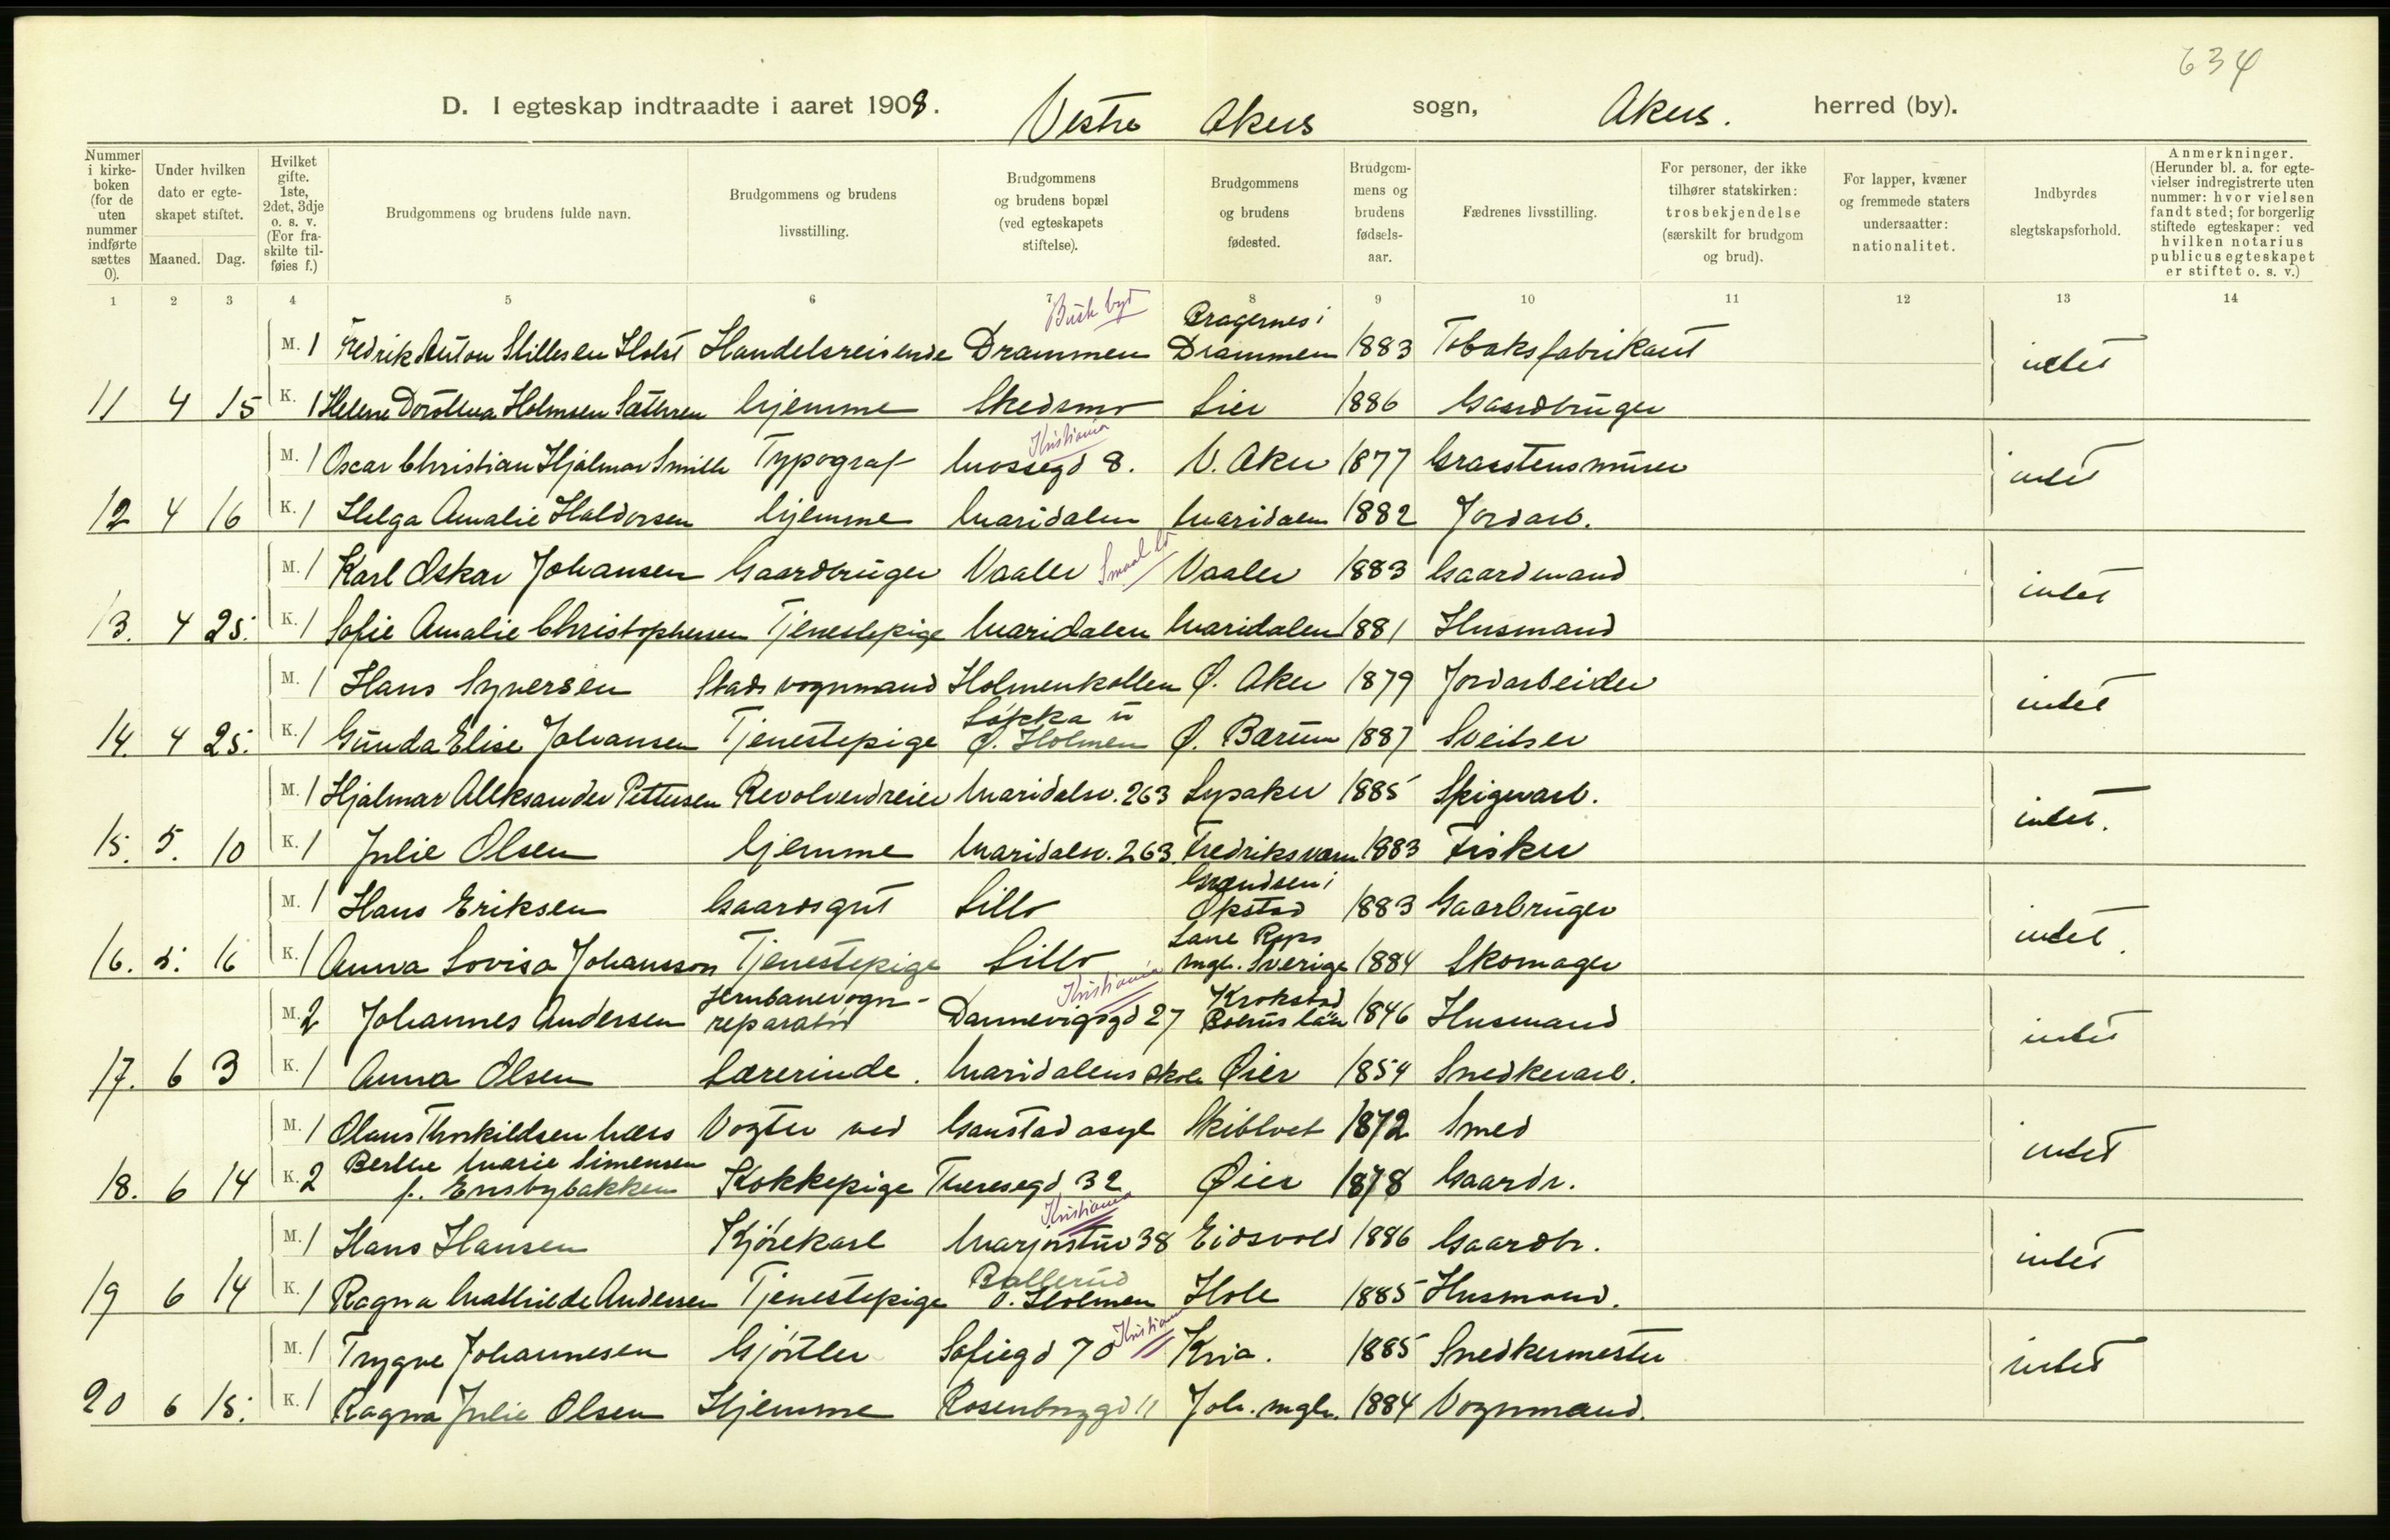 634
D. I egteskap indtraadte i aaret 1908. Vestre Akers sogn, Akers. herred (by).
Nummer i kirkeboken (for de uten nummer indførte sættes 0).
Under hvilken dato er egteskapet stiftet.
Maaned. Dag.
Hvilket gifte. 1ste, 2det, 3dje o. s. v. (For fraskilte tilføies f.)
Brudgommens og brudens fulde navn.
Brudgommens og brudens livsstilling.
Brudgommens og brudens bopæl (ved egteskapets stiftelse).
Brudgommens og brudens fødested.
Brudgommens og brudens fødselsaar.
Fædrenes livsstilling.
For personer, der ikke tilhører statskirken: trosbekjendelse (særskilt for brudgom og brud).
For lapper, kvæner og fremmede staters undersaatter: nationalitet.
Indbyrdes slegtskapsforhold.
Anmerkninger. (Herunder bl. a. for egtevielser indregistrerte uten nummer: hvor vielsen fandt sted; for borgerlig stiftede egteskaper: ved hvilken notarius publicus egteskapet er stiftet o. s. v.)
1 2 3 4 5 6 7 8 9 10 11 12 13 14
Busk byd Bragernes i
M. 1 Fredrik Anton Stillesen Holst Handelsreisende Drammen Drammen 1883 Tobaksfabrikant intet
11 4 15 K. 1 Helene Dorothea Holmsen Sæthren hjemme Skedsmo Lier 1886 Gaardbruger
Kristiania
M. 1 Oscar Christian Hjalmar Smith Typograf Mossegd 8. V. Aker 1877 Graastensmurer intet
12 4 16 K. 1 Helga Amalie Haldorsen hjemme Maridalen Maridalen 1882 Jordarb.
M. 1 Karl Oskar Johansen Gaardbruger Vaaler Smaal. Vaaler 1883 Gaardmand intet
13. 4 25. K. 1 Sofie Amalie Christophersen Tjenestepige Maridalen Maridalen 1881 Husmand
M. 1 Hans Syversen Stads vognmand Holmenkollen Ø. Aker 1879 Jordarbeider intet
14. 4 25. K. 1 Gunda Elise Johansen Tjenestepige Ø. Holmen Ø. Bærum 1887 Sveitser
M. 1 Hjalmar Aleksander Pettersen Revolverdreier Maridalsv. 263 Lysaker 1885 Spigerarb. intet.
15. 5. 10 K. 1 Julie Olsen hjemme Maridalsv. 263. Fredriksværn 1883 Fisker
Grændsen i
M. 1 Hans Eriksen Gaardsgut Lillo Økstad 1883 Gaarbruger intet.
16. 5. 16 K. 1 Anna Lovisa Johansson Tjenestepige Lillo mgh. Sverige 1884 Skomager
Jernbanevogn- Kristiania Krokstad
M. 2 Johannes Andersen reparatør Dannevigsgd 27 Bohus län 1846 Husmand intet
17. 6 3 K. 1 Anna Olsen Lærerinde. Maridalens skole Øier 1854 Snedkerarb.
M. 1 Olaus Thorkildsen Næss Vogter ved Gaustad asyl Skiblvet 1872 Smed intet
Berthe Marie Simensen
18. 6 14 K. 2 f. Ensbybakken Kokkepige Theresegd 32 Øier 1878 Gaardr.
Kristiania
M. 1 Hans Hansen Kjørekarl Marjorstuv 38 Eidsvold 1886 Gaardbr. intet
Ballerud
19 6 14 K. 1 Ragna Mathilde Andersen Tjenestepige V. Holmen Hole 1885 Husmand.
Kristiania
M. 1 Trygve Johannesen Gjørtler Sofiegd 70 Kria. 1885 Snedkermester intet
20 6 15. K. 1 Ragna Julie Olsen Hjemme Rosenborggd 11 Joh. mgh. 1884 Vognmand.